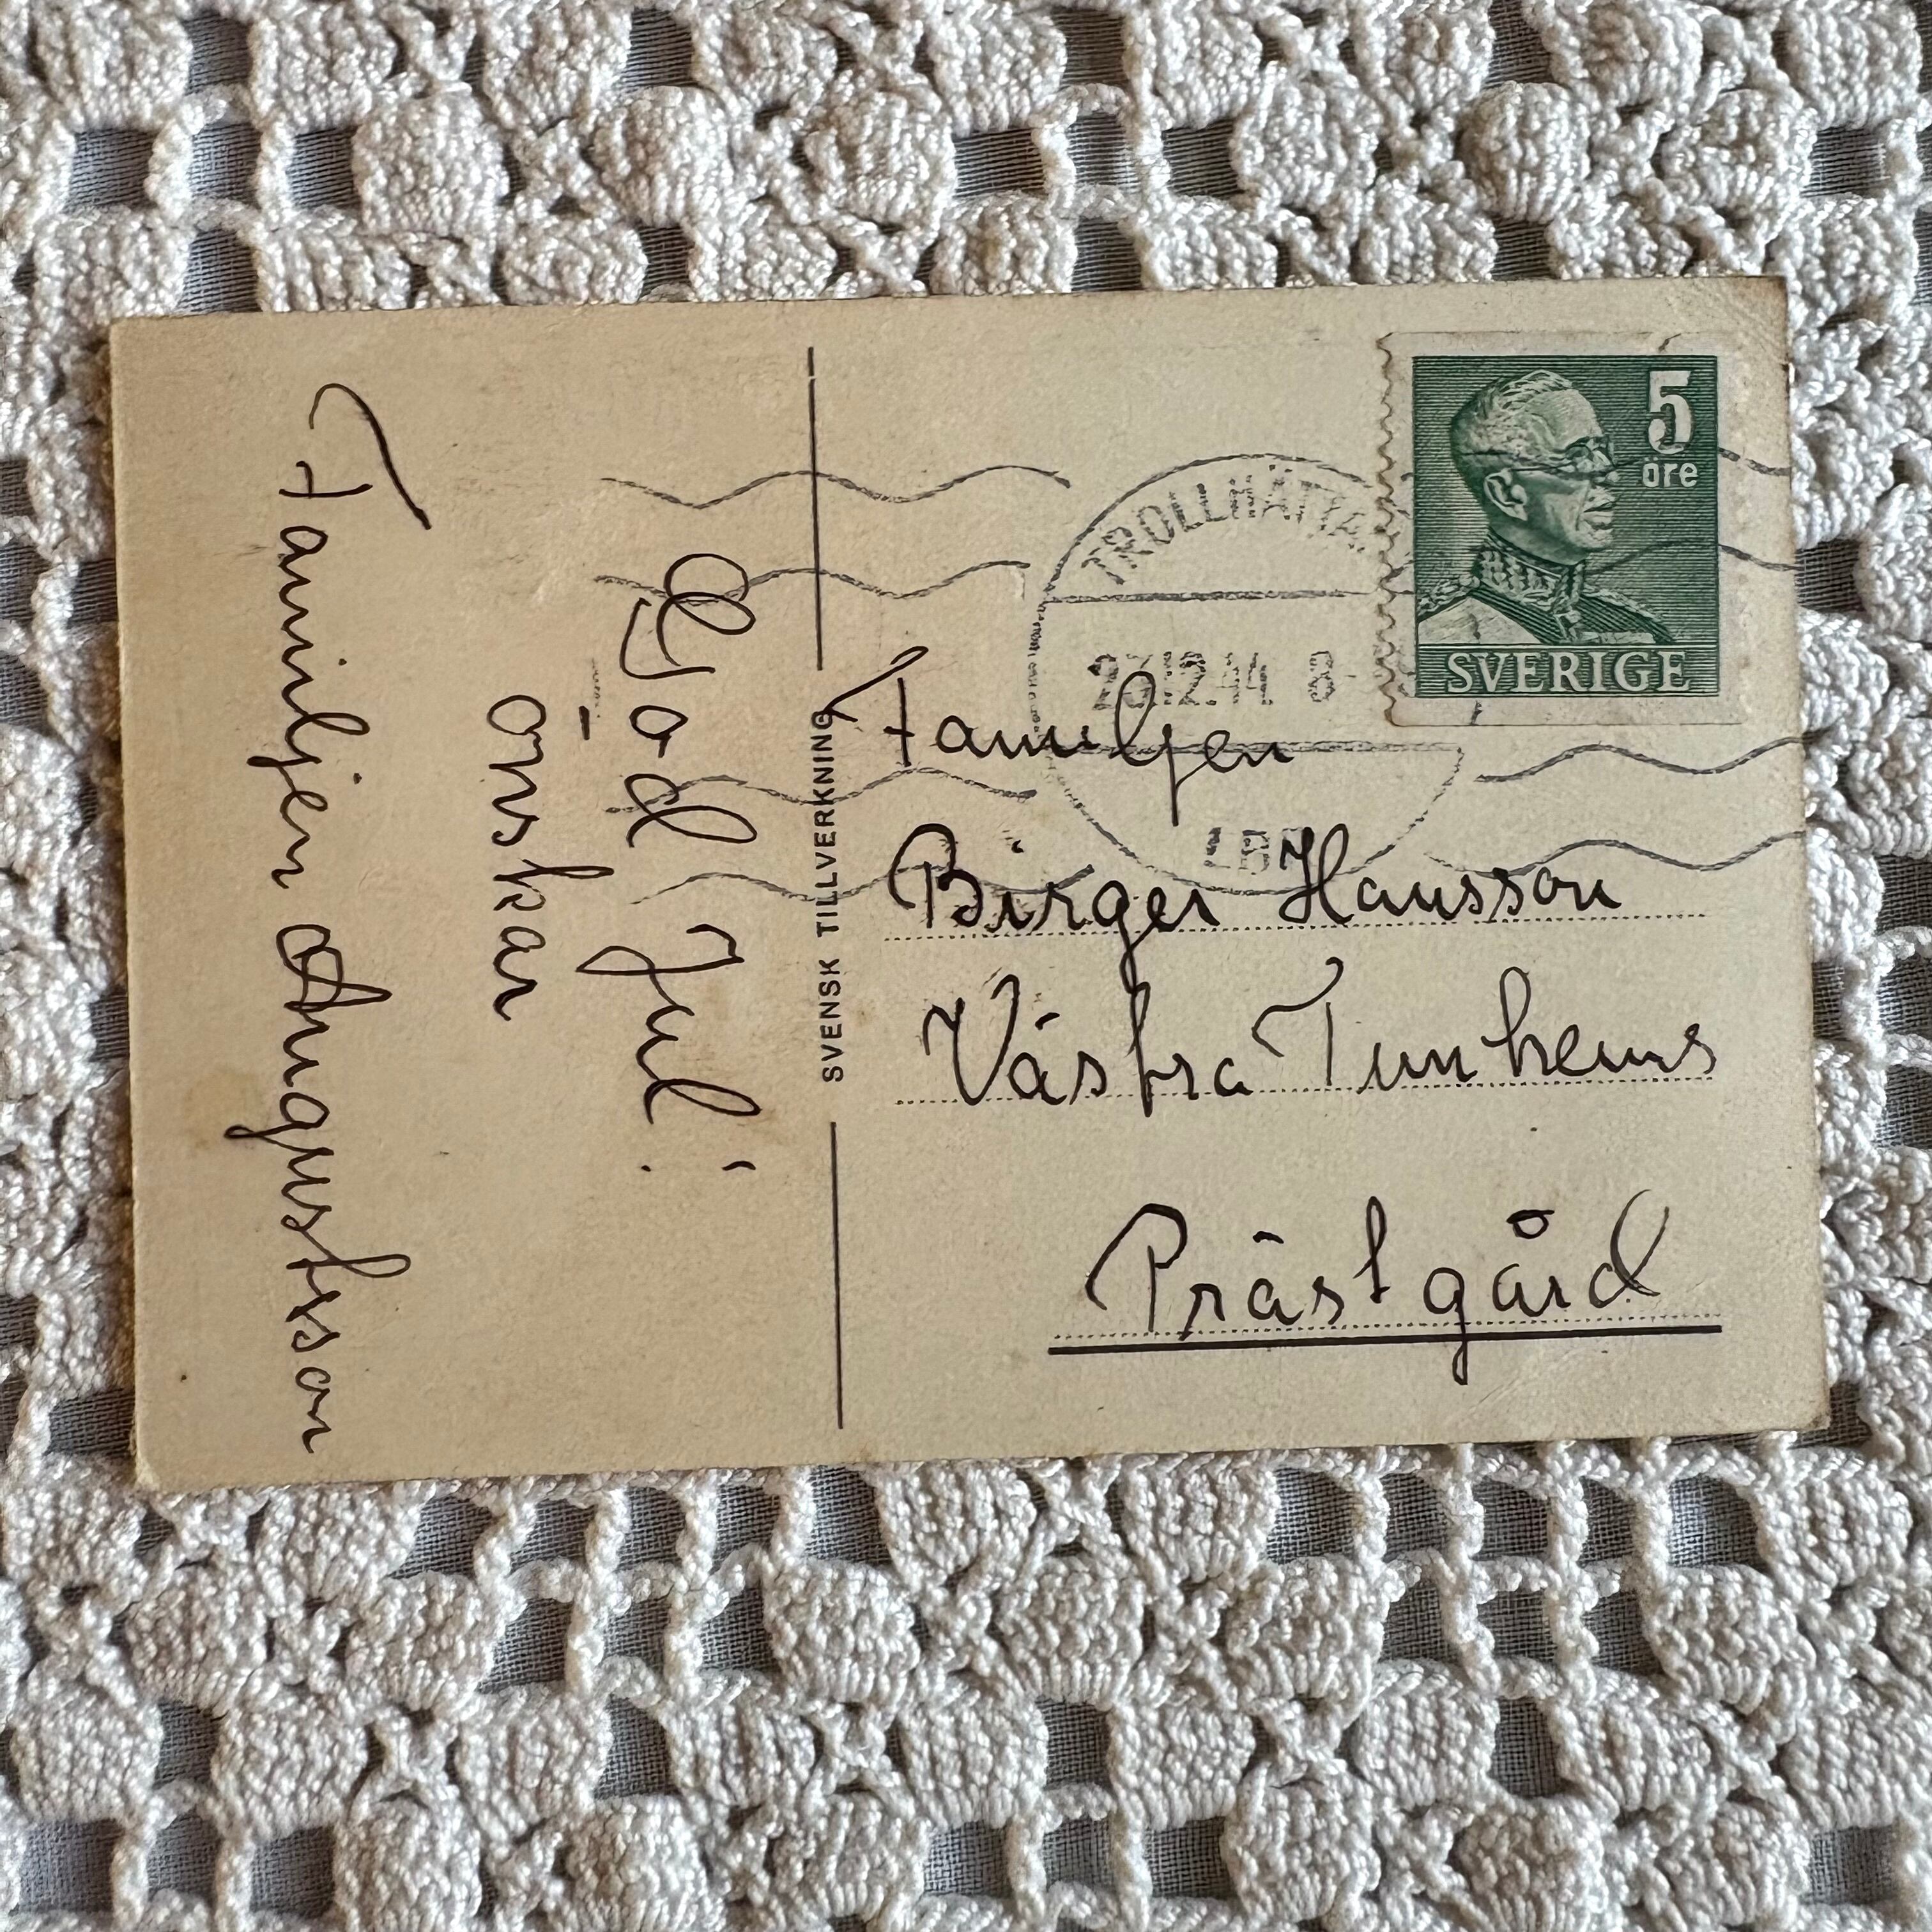 God Jul!
önskar
Familjen Augustsson
SVENSK TILLVERKNING
5
öre
SVERIGE
TROLLHÄTTA
23.12.44 8-
LBR
Familjen
Birger Hansson
Västra Tunhems
Prästgård